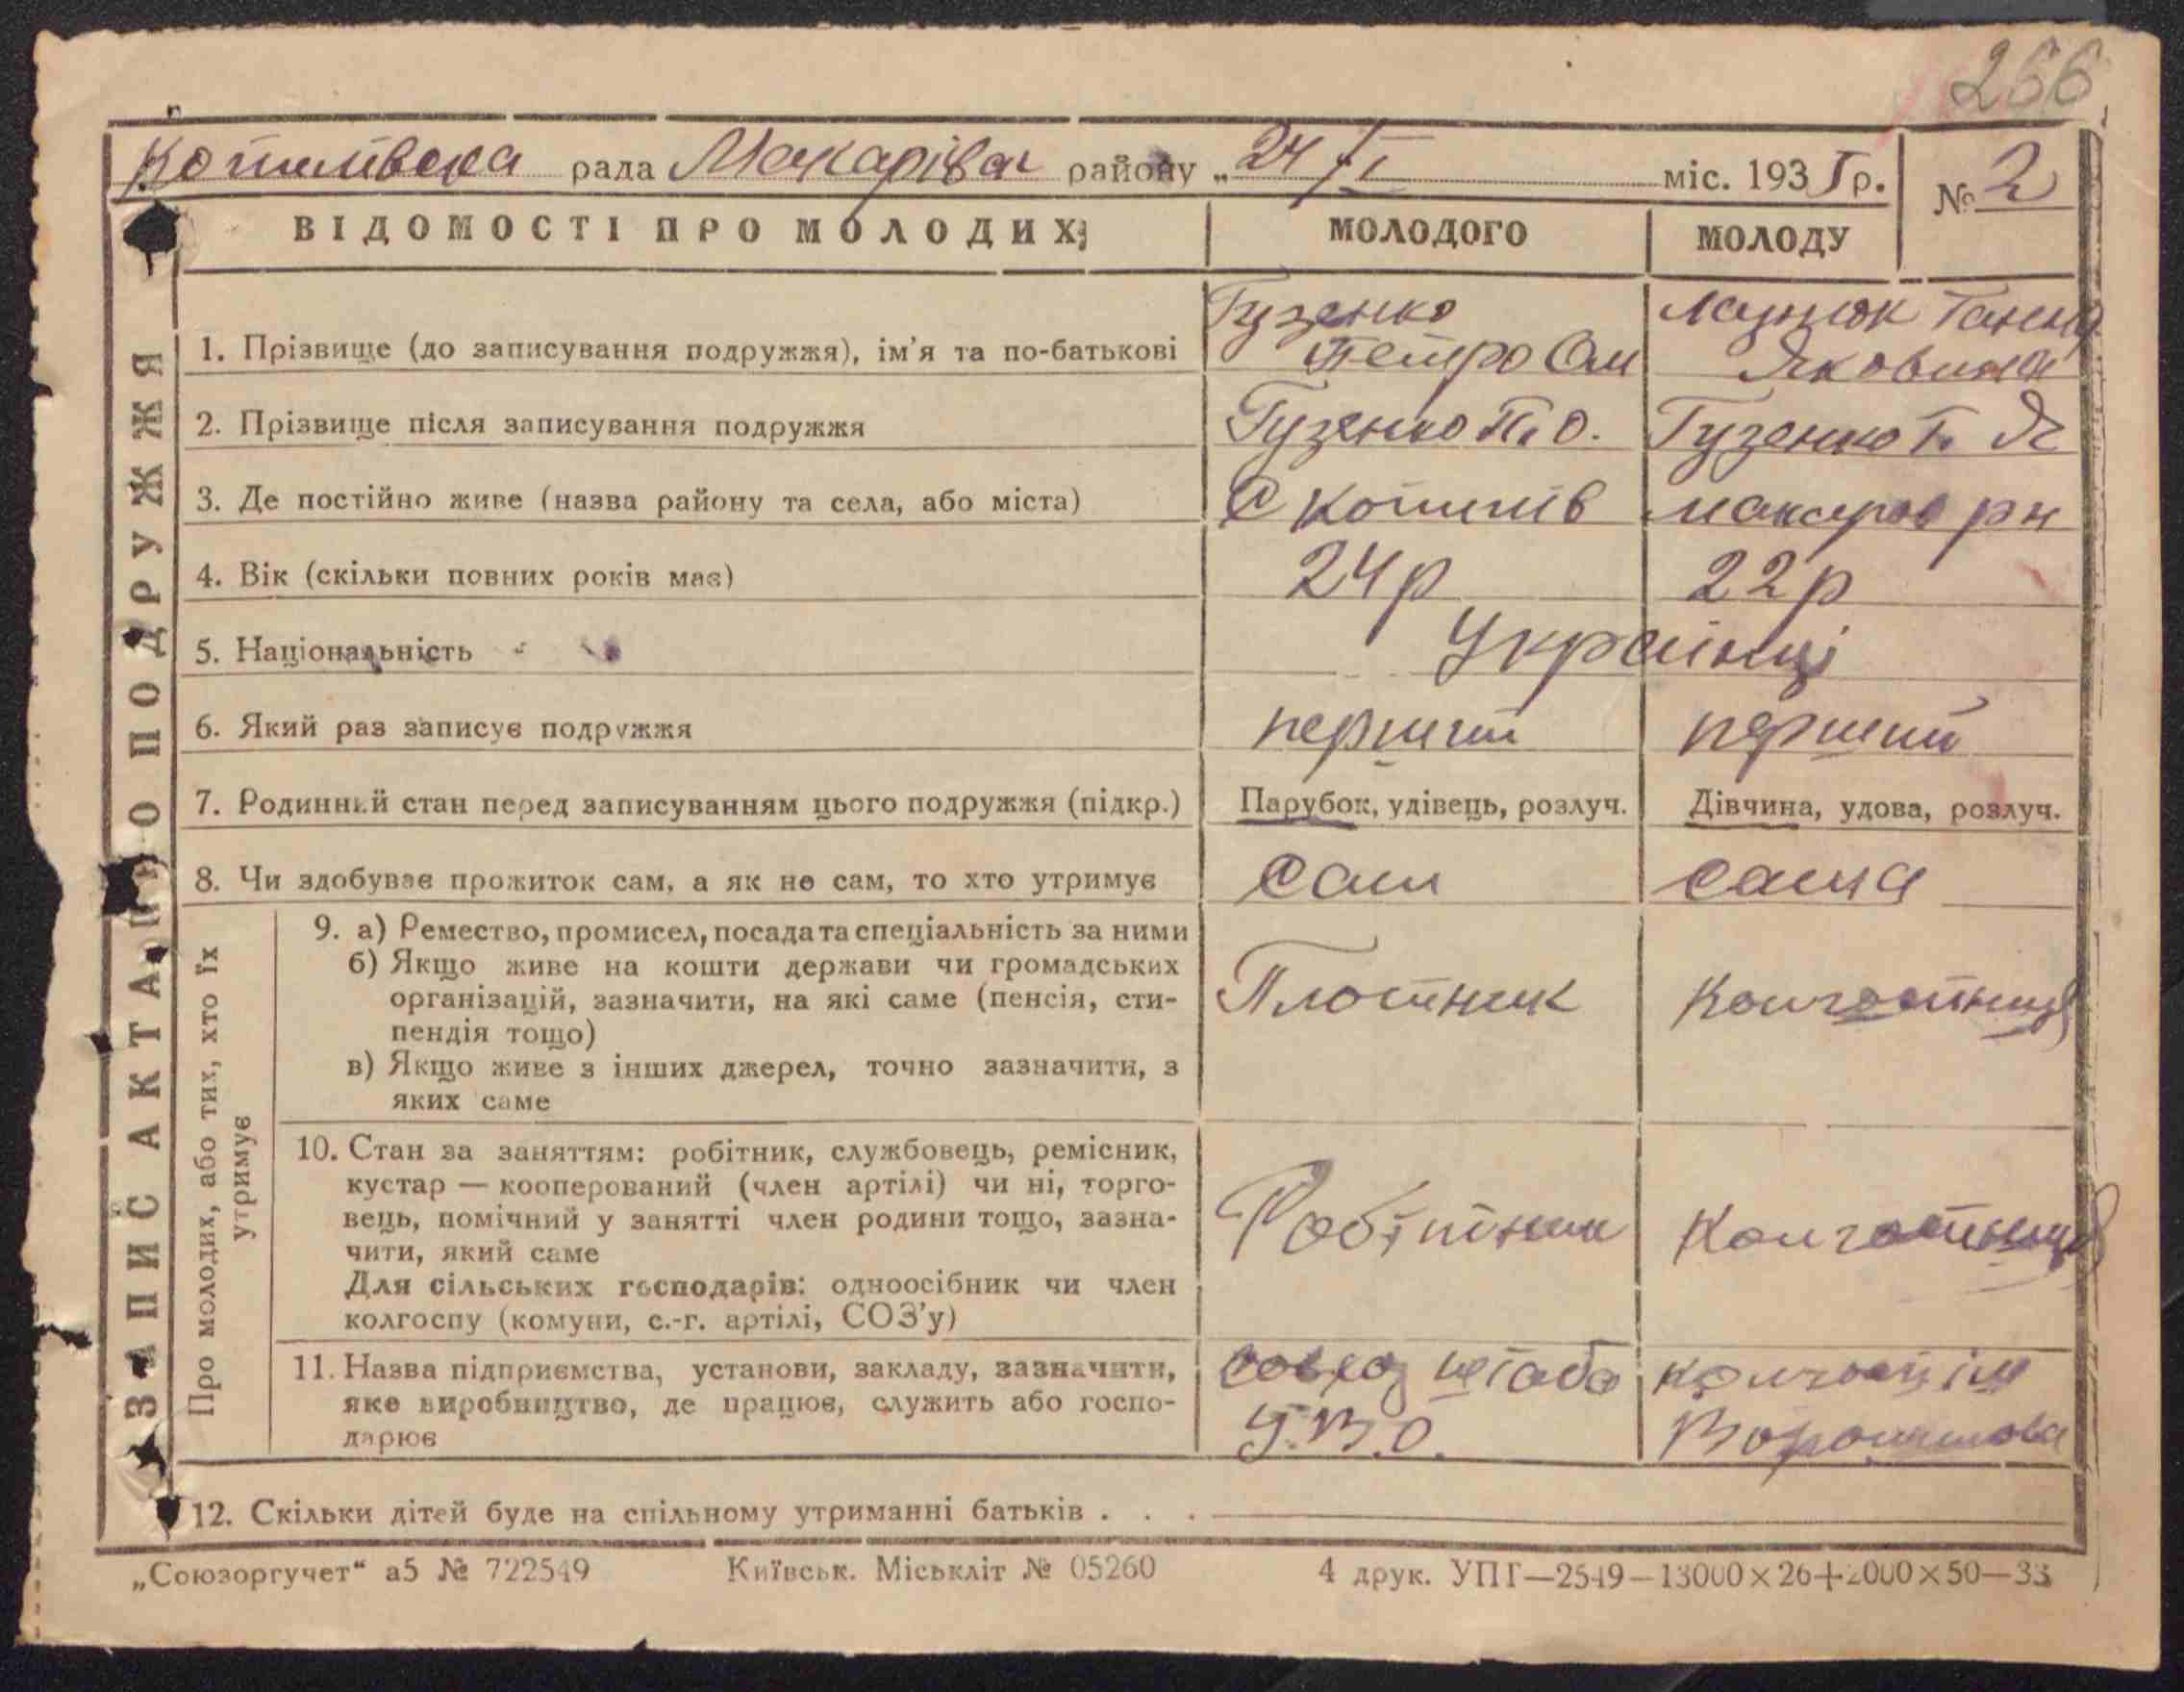 266
Копилівска рада Макарівськ району „ 24/I міс. 1935 р. № 2
ВІДОМОСТІ ПРО МОЛОДИХ МОЛОДОГО МОЛОДУ
Гузенко
Ганна
1. Прізвище (до записування подружжя), ім’я та по-батькові Петро Ом Яковина
2. Прізвище після записування подружжя Гузенко П. О. Гузенко Г. Я
3. Де постійно живе (назва району та села, або міста) С Копилів макаров рн
4. Вік (скільки повних років має) 24 р 22 р
5. Національність Українці
6. Який раз записує подружжя перший перший
7. Родинний стан перед записуванням цього подружжя (підкр.) Парубок, удівець, розлуч. Дівчина, удова, розлуч.
8. Чи здобуває прожиток сам, а як не сам, то хто утримує Сам сама
9. а) Ремество, промисел, посада та спеціальність за ними
б) Якщо живе на кошти держави чи громадських
організацій, зазначити, на які саме (пенсія, сти-
пендія тощо)
в) Якщо живе з інших джерел, точно зазначити, з
яких саме
Плотник Колгоспниця
10. Стан за заняттям: робітник, службовець, ремісник,
кустар — кооперований (член артілі) чи ні, торго-
вець, помічний у занятті член родини тощо, зазна-
чити, який саме
Для сільських господарів: одноосібник чи член
колгоспу (комуни, с.-г. артілі, СОЗ’у)
Робітник Колгоспниця
11. Назва підприємства, установи, закладу, зазначити,
яке виробництво, де працює, служить або госпо-
дарює
совхоз штаба
У.В.О.
Ворошилова
12. Скільки дітей буде на спільному утриманні батьків . . .
ЗАПИС АКТА ПРО ПОДРУЖЖЯ
Про молодих, або тих, хто їх
утримує
„Союзоргучет“ а5 № 722549 Київськ. Міськліт № 05260 4 друк. УПГ—2549—13000×26+2000×50—33